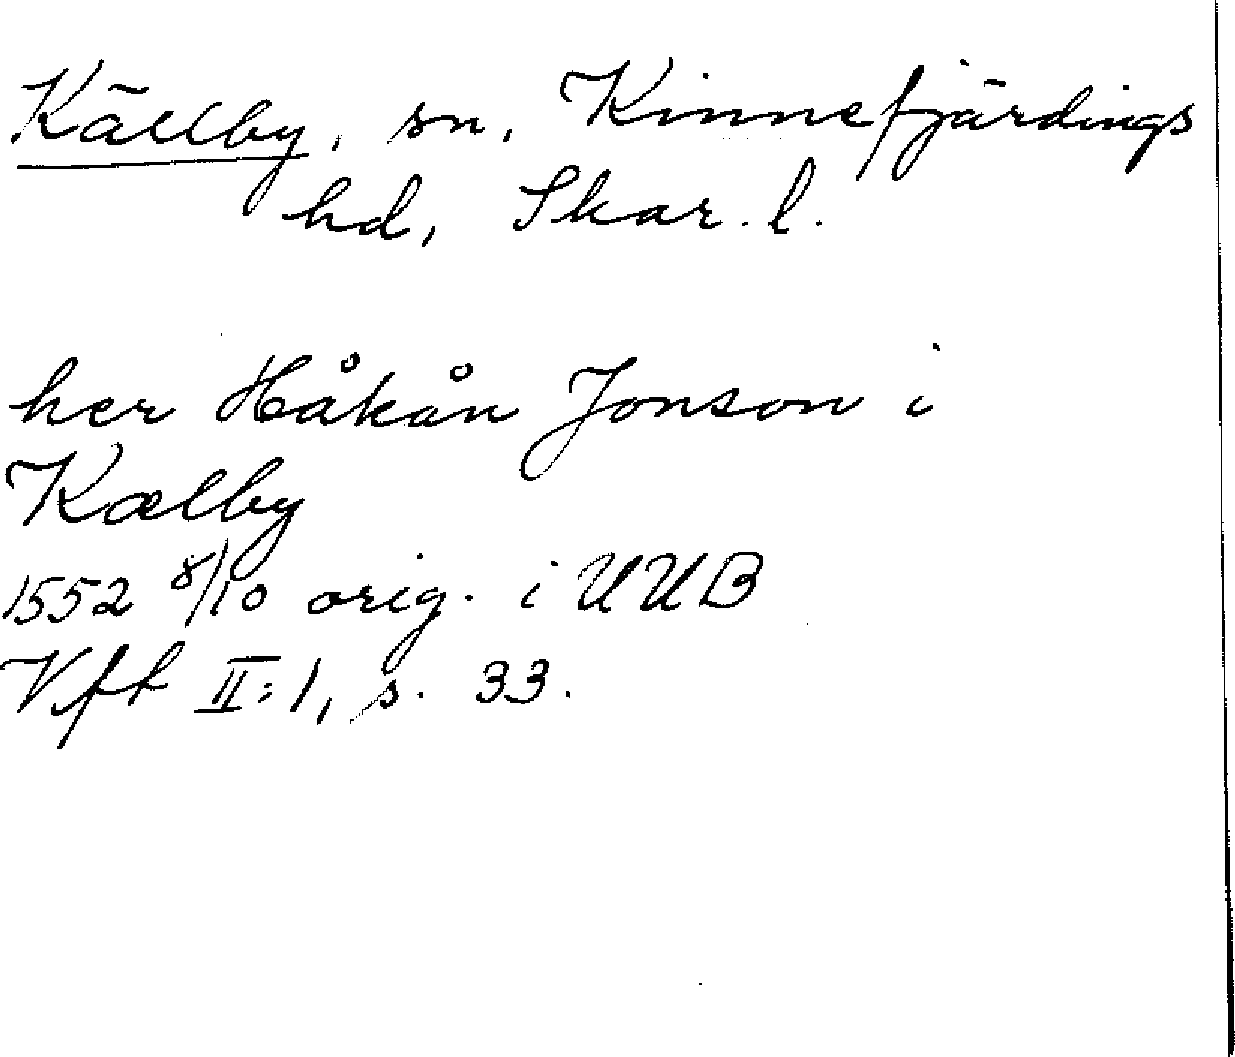 Källby, sn, Kinnefjärdings
hd, Skar. l.
her Håkån Jonson i
Kælby
1552 8/10 orig. i UUB
Vft II:1, s. 33.